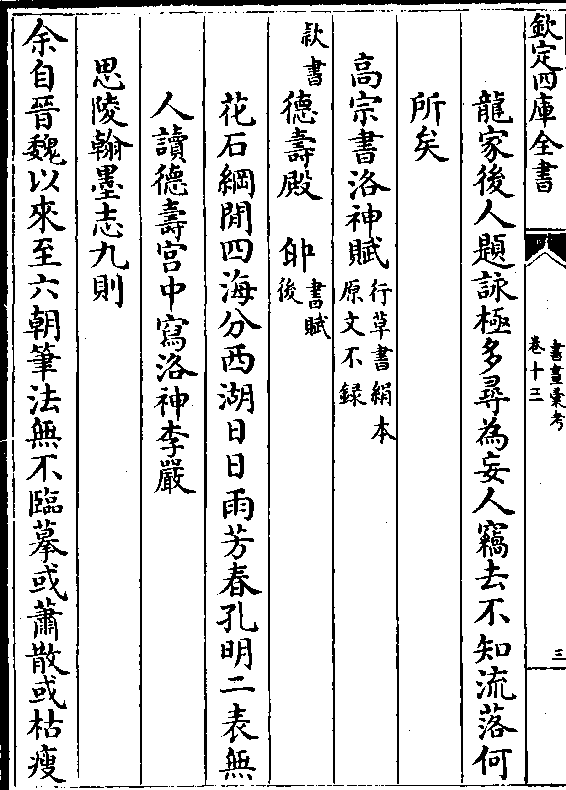 欽定四庫全書
書畫彙考
卷十三
三
龍家後人題詠極多尋為妄人竊去不知流落何
所矣
高宗書洛神賦行草書絹本
原文不録
款書
德壽殿 印書賦
後
花石綱閒四海分西湖日日雨芳春孔明二表無
人讀德壽宮中寫洛神李嚴
思陵翰墨志九則
余自晉魏以來至六朝筆法無不臨摹或蕭散或枯瘦